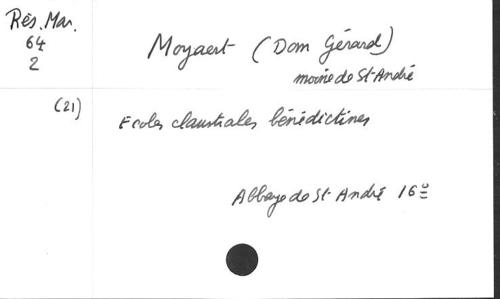 Rés. Mar.
64
2
Moyaert (Dom Gérard)
moine de St-André
(21)
Ecoles claustrales bénédictines
Abbaye de St-André 16º